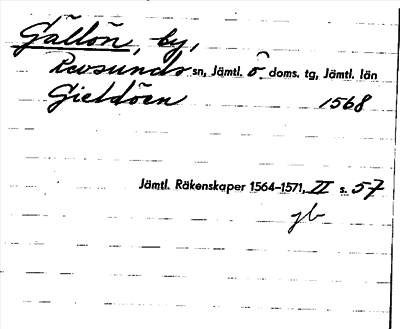 Gällön, by,
Revsunds sn, Jämtl. ö. doms. tg, Jämtl. län
Gieldöen 1568
Jämtl. Räkenskaper 1564–1571, II s. 57